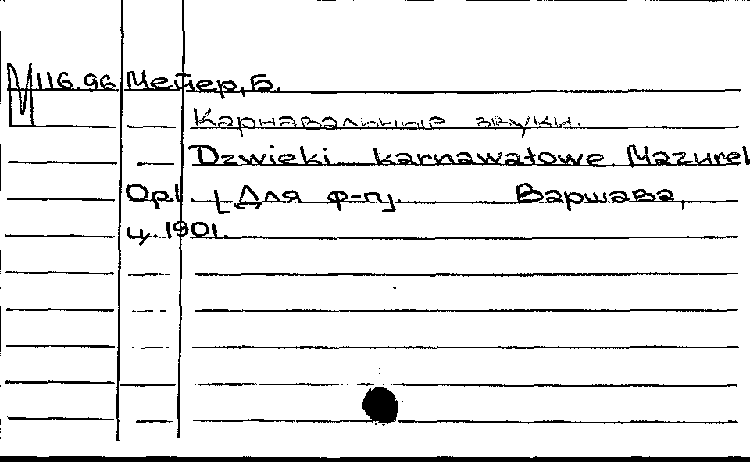 М 116.96 Мейер, Б.
Карнавальные звуки.
Dzwieki karnawałowe. Mazurek
Op. 1. [Для ф-п].        Варшава,
ц. 1901.